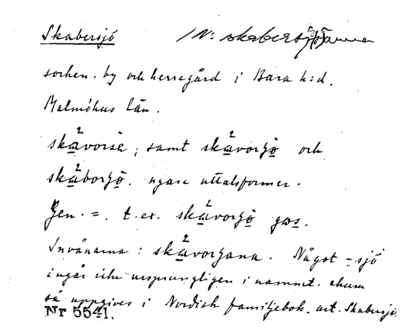 Skabersjö IN: skabersjöarna
socken. by och herregård i Bara h:d.
Malmöhus län.
skávorsè, samt skávorjö och
skáborjö. ngare uttalsformer.
Gen. =. t.ex. skávorjö gos.
Invånarna: skávorgana. Något -sjö
ingår icke ursprungligen i namnet. ehuru
så uppgives i Nordisk familjebok. art. Skabersjö.
Nr 5541.